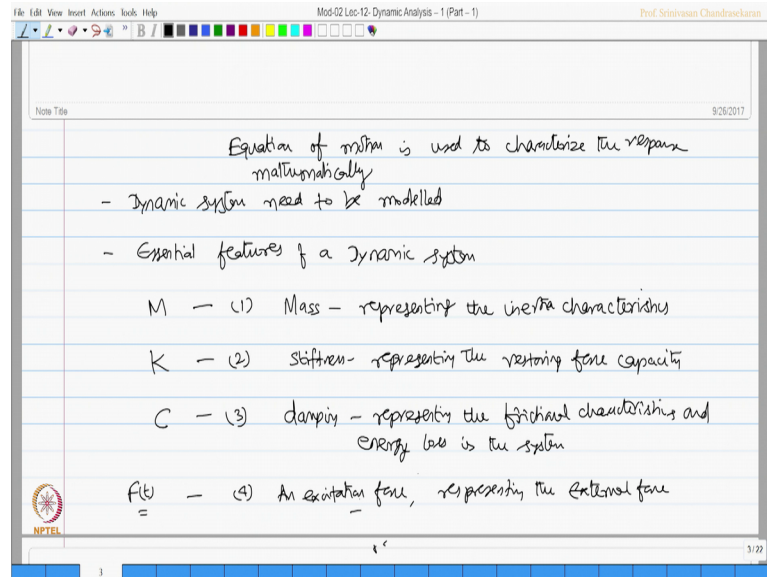 File Edit View Insert Actions Tools Help
Mod-02 Lec-12- Dynamic Analysis – 1 (Part – 1)
Prof. Srinivasan Chandrasekaran
B I
Note Title
9/26/2017
Equation of motion is used to characterize the response
mathematically
- Dynamic system need to be modelled
- Essential features of a Dynamic system
M - (1) Mass - representing the inertia characteristics
K - (2) Stiffness - representing the restoring force capacity
C - (3) damping - representing the frictional characteristics and
energy loss is the system
F(t) - (4) An excitation force, respresenting the external force
NPTEL
3/22
3